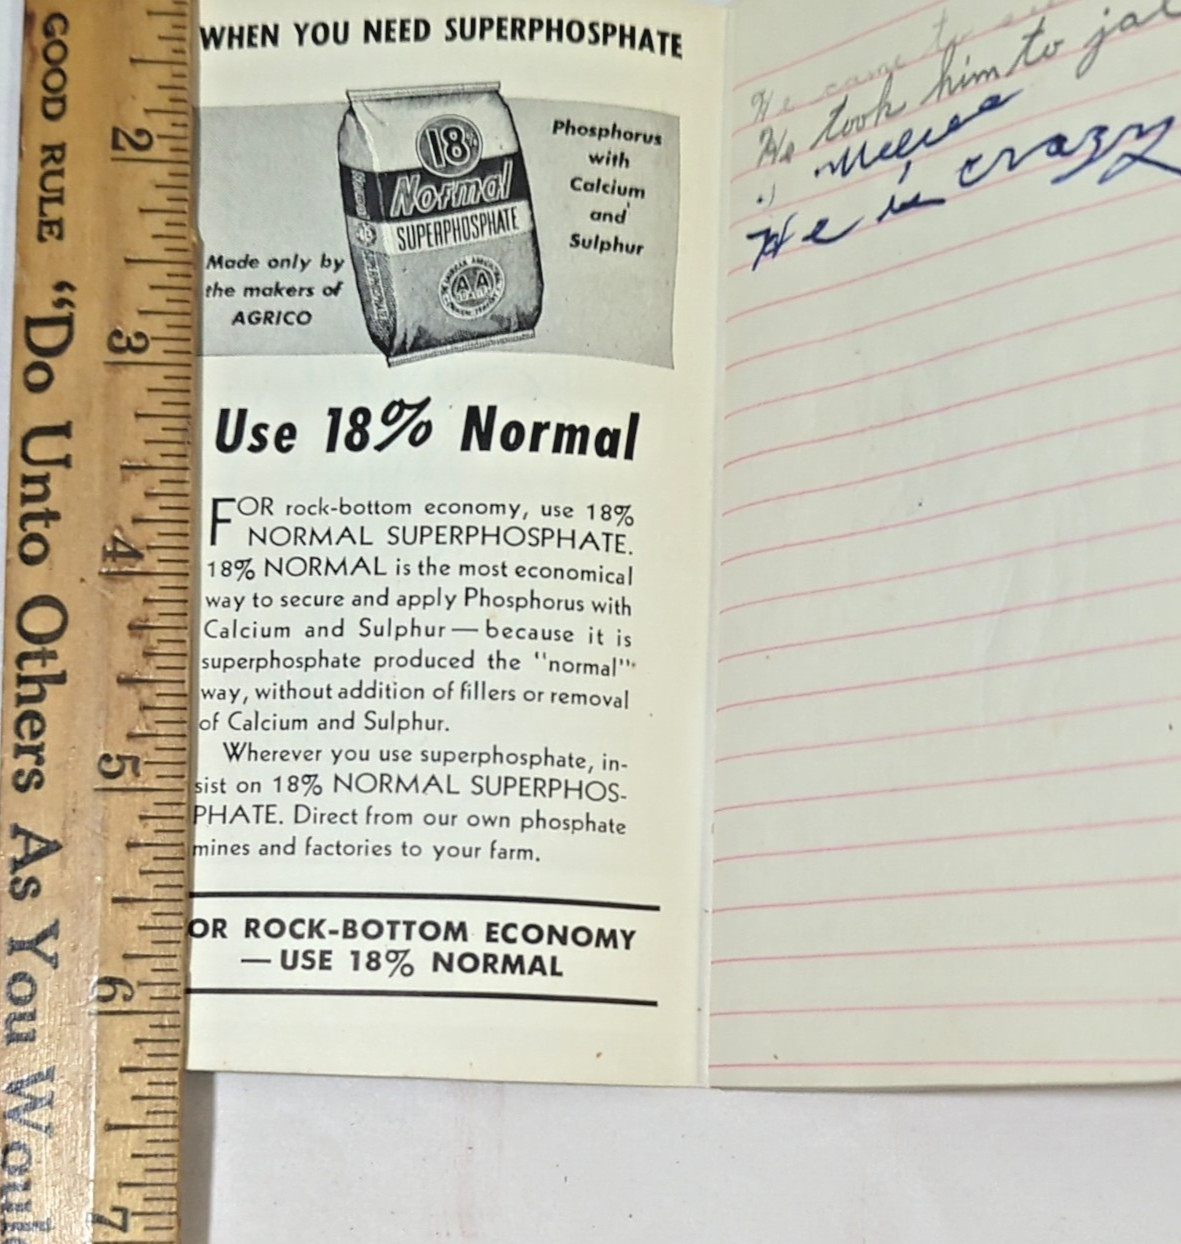 GOOD RULE "Do Unto Others As You Would
2
3
4
5
6
7
WHEN YOU NEED SUPERPHOSPHATE
18%
Normal
SUPERPHOSPHATE
AA
Phosphorus
with
Calcium
and
Sulphur
Made only by
the makers of
AGRICO
Use 18% Normal
FOR rock-bottom economy, use 18%
NORMAL SUPERPHOSPHATE.
18% NORMAL is the most economical
way to secure and apply Phosphorus with
Calcium and Sulphur — because it is
superphosphate produced the "normal"
way, without addition of fillers or removal
of Calcium and Sulphur.
Wherever you use superphosphate, in-
sist on 18% NORMAL SUPERPHOS-
PHATE. Direct from our own phosphate
mines and factories to your farm.
OR ROCK-BOTTOM ECONOMY
— USE 18% NORMAL
He came to
He took him to jal
He is crazy